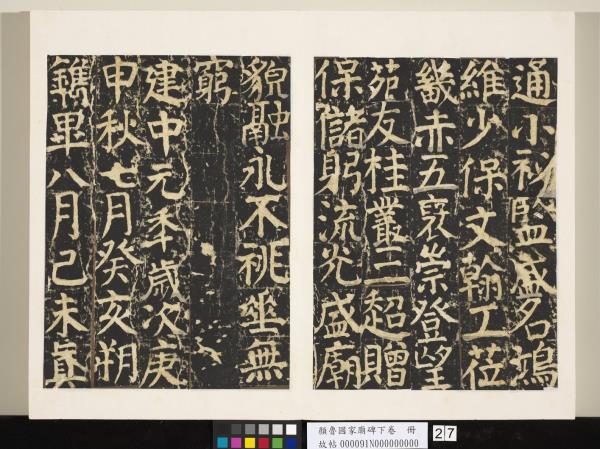 通小祕監盛名鴻
維少保文翰工莅
畿赤五裒崇登望
苑友桂叢二超贈
保儲躬流光盛廟
貌融永不祧垂無
窮
建中元年歲次庚
申秋七月癸亥朔
鐫畢八月己未眞
顏魯國家廟碑下卷 冊
故帖 000091N000000000
27